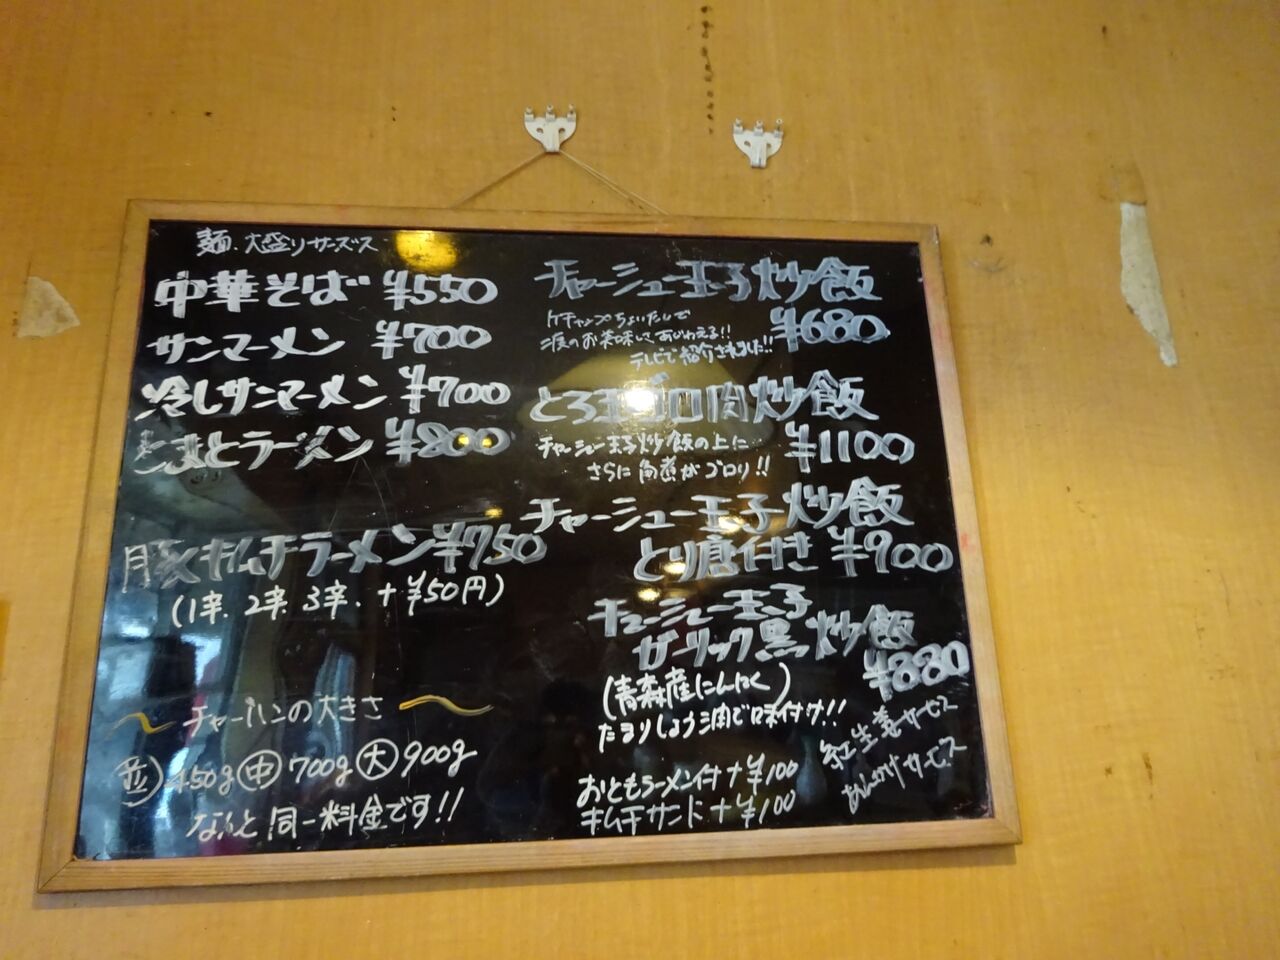 麺、大盛りサービス
中華そば ¥550
サンマーメン ¥700
冷しサンマーメン ¥700
とまとラーメン ¥800
豚キムチラーメン ¥750
(1辛、2辛、3辛、+¥50円)
チャーハンの大きさ
並 450g 中 700g 大 900g
なんと同一料金です!!
チャーシュー玉子炒飯
¥680
ケチャップちょいたしで
二度のお茶味しく あじわえる!!
テレビで紹介されました!!
とろ玉ゴロ肉炒飯
¥1100
チャーシュー玉子炒飯の上に
さらに角煮がゴロリ!!
チャーシュー玉子炒飯
とり唐付き ¥900
チャーシュー玉子
ガーリック黒炒飯
¥880
(青森産にんにく)
たまりしょう油で味付け!!
紅生姜サービス
あんかけサービス
おともラーメン付+¥100
キムチサンド+¥100